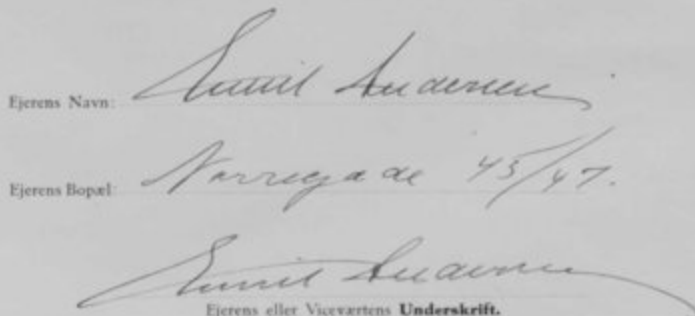 Ejerens Navn: Emil Andersen
Ejerens Bopæl: Nørregade 45/47.
Emil Andersen
Ejerens eller Viceværtens Underskrift.